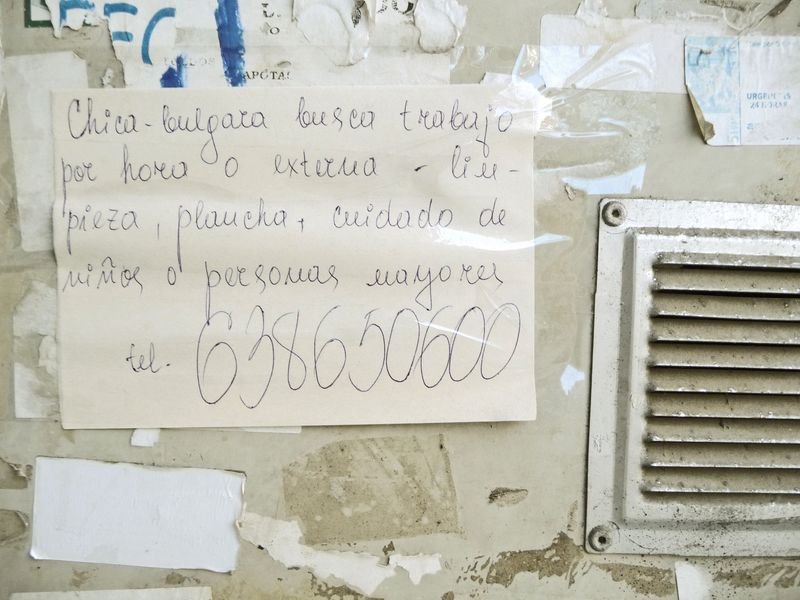 Chica-bulgara busca trabajo
por hora o externa - lim-
pieza, plancha, cuidado de
niños o personas mayores
tel. 638650600
URGENCIAS
24 HORAS